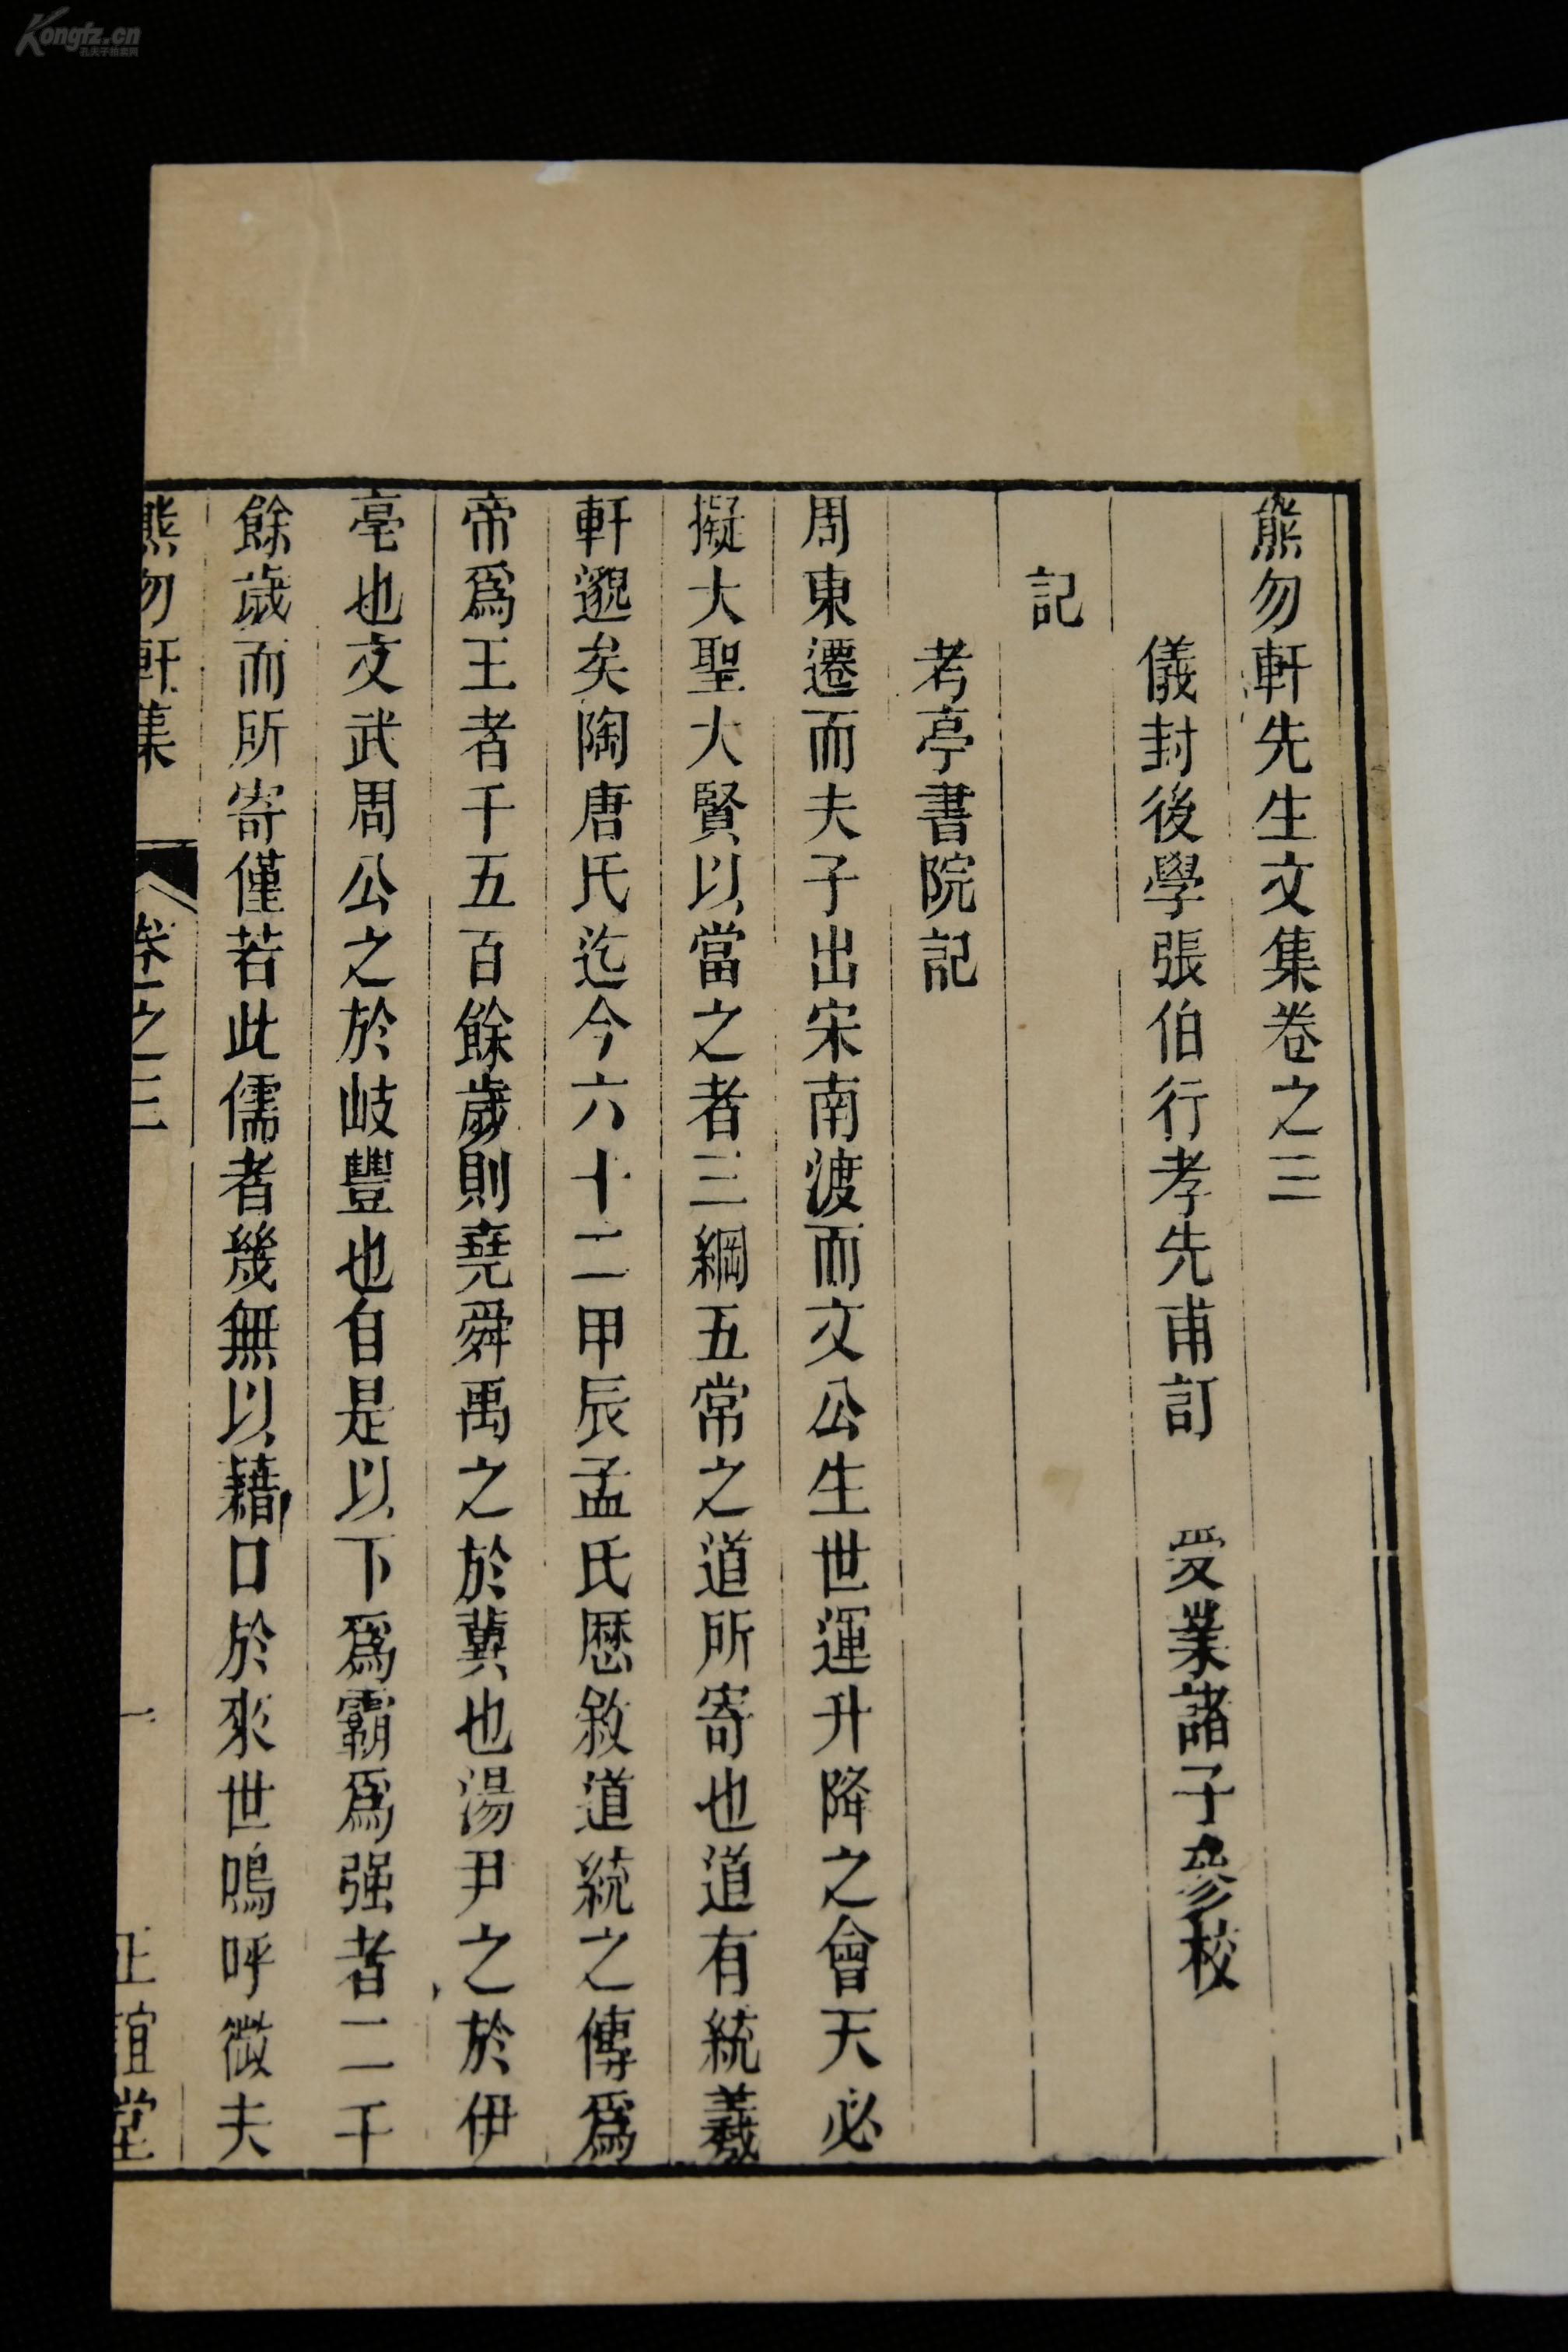 熊勿軒先生文集卷之三
儀封後學張伯行孝先甫訂 受業諸子參校
記
考亭書院記
周東遷而夫子出宋南渡而文公生世運升降之會天必
擬大聖大賢以當之者三綱五常之道所寄也道有統羲
軒邈矣陶唐氏迄今六十二甲辰孟氏歷敘道統之傳爲
帝爲王者千五百餘歲則堯舜禹之於冀也湯尹之於伊
亳也文武周公之於岐豐也自是以下爲霸爲强者二千
餘歲而所寄僅若此儒者幾無以藉口於來世嗚呼微夫
熊勿軒集 卷之三 一 正誼堂
Kongfz.cn
孔夫子拍卖网